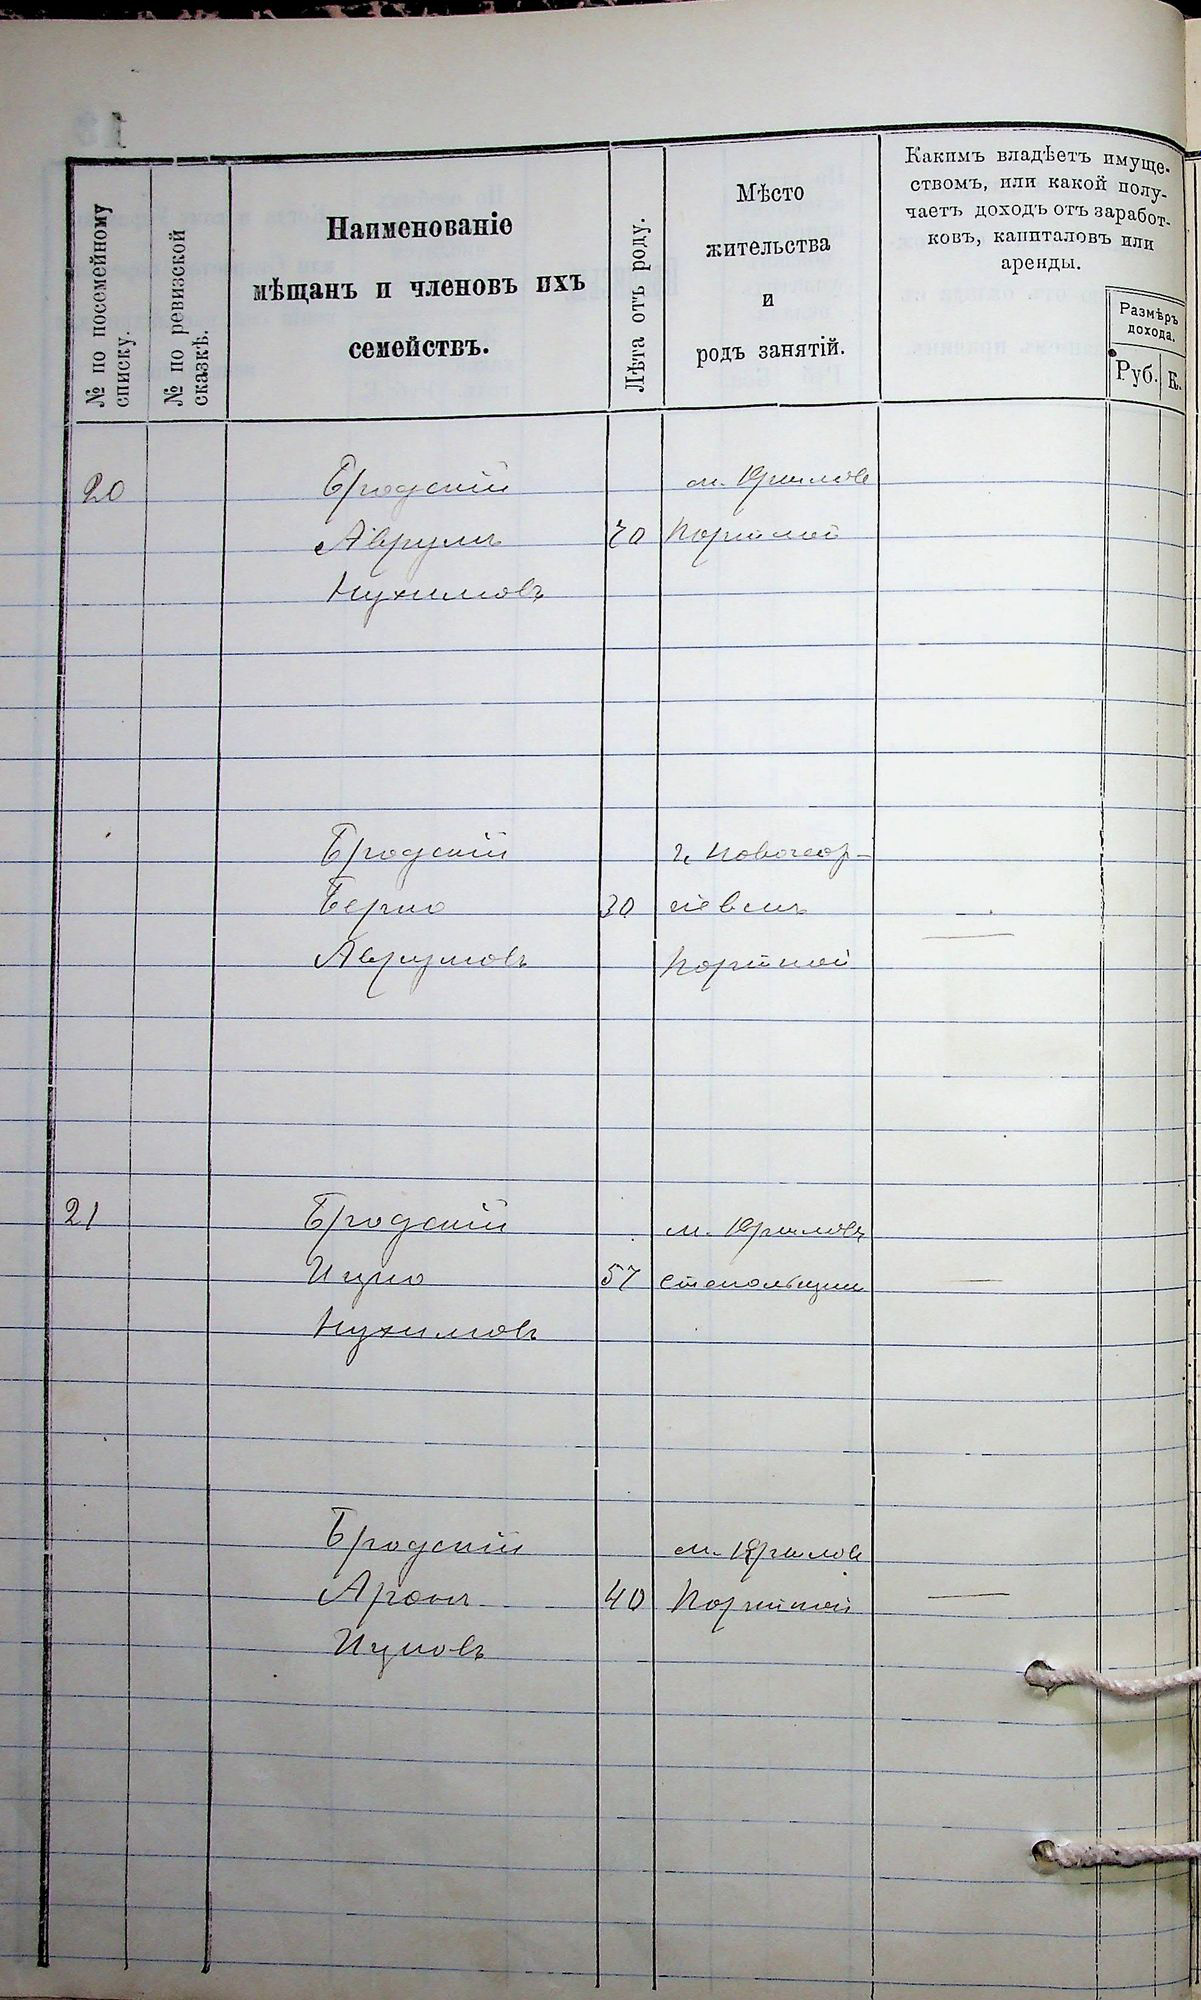 № по посемейному
списку.
№ по ревизской
сказкѣ.
Наименованіе
мѣщанъ и членовъ ихъ
семействъ.
Лѣта отъ роду.
Мѣсто
жительства
и
родъ занятій.
Какимъ владѣетъ имуще-
ствомъ, или какой полу-
чаетъ доходъ отъ заработ-
ковъ, капиталовъ или
аренды.
Размѣръ
дохода.
Руб. К.
20 Бродскій м. Крыловъ
Аврумъ 70 Портной
Нухимовъ
Бродскій г. Новогеор-
Берко 30 гіевскъ
Аврумовъ Портной
21 Бродскій м. Крыловъ
Ицко 57
Нухимовъ
Бродскій м. Крыловъ
Аронъ 40 Портной
Ицковъ